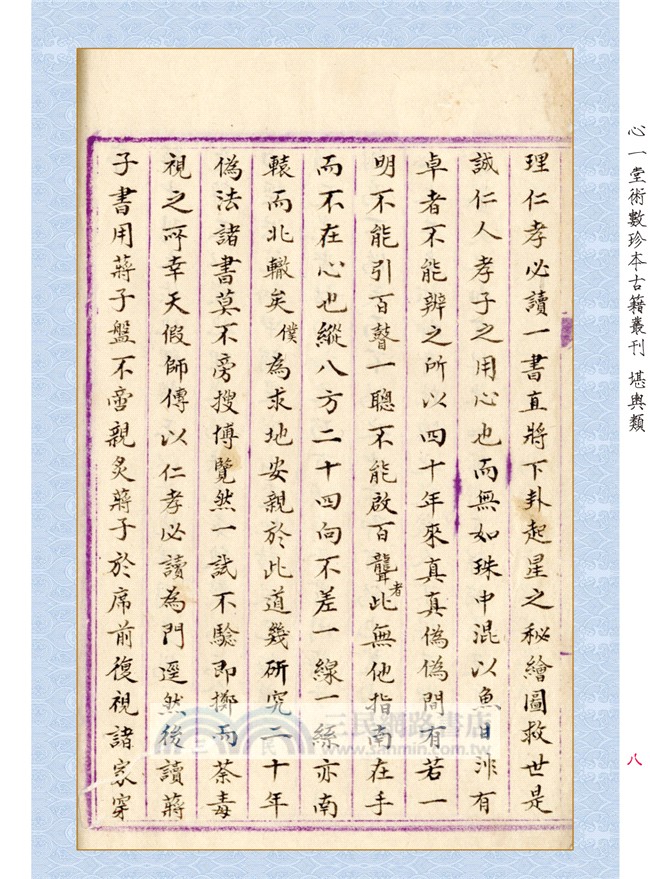 理仁孝必讀一書直將下卦起星之秘繪圖救世是
誠仁人孝子之用心也而無如珠中混以魚目非有
卓者不能辨之所以四十年來真真偽偽間有若一
明不能引百瞽一聰不能啟百聾者此無他指南在手
而不在心也縱八方二十四向不差一線一絲亦南
轅而北轍矣僕為求地安親於此道幾研究二十年
偽法諸書莫不旁搜博覽然一試不驗即擲而荼毒
視之所幸天假師傳以仁孝必讀為門逕然後讀蔣
子書用蔣子盤不啻親炙蔣子於席前復視諸家穿
心一堂術數珍本古籍叢刊 堪輿類
八
三民網路書店
www.sanmin.com.tw
三
民